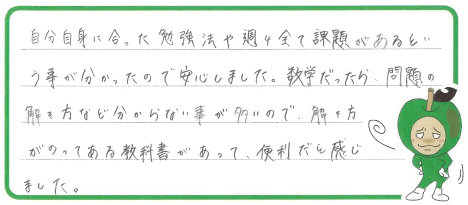 自分自身に合った勉強法や週4全て課題があるとい
う事が分かったので安心しました。数学だったら、問題の
解き方など分からない事が多いので、解き方
がのってある教科書があって、便利だと感じ
ました。